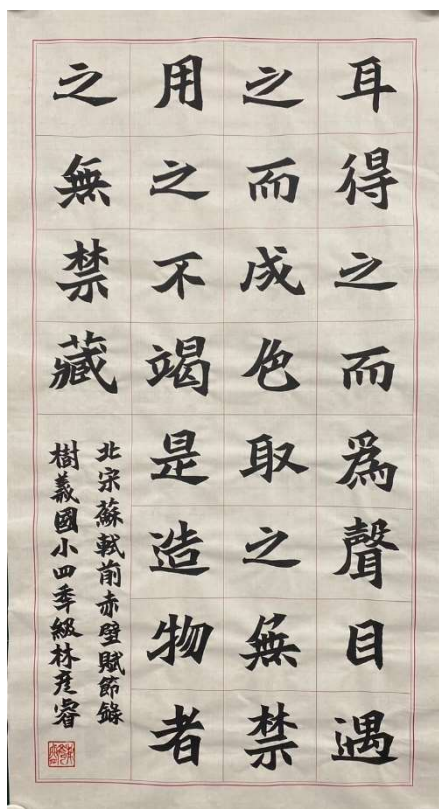 耳得之而為聲目遇
之而成色取之無禁
用之不竭是造物者
之無禁藏
北宋蘇軾前赤壁賦節錄
樹義國小四年級林彥睿